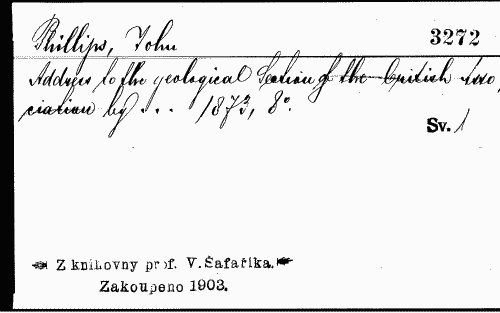 Phillips, John 3272
Address to the geological Section of the British Asso
ciation by . . . 1873, 8°.
Sv. 1
Z knihovny prof. V. Šafaříka.
Zakoupeno 1903.